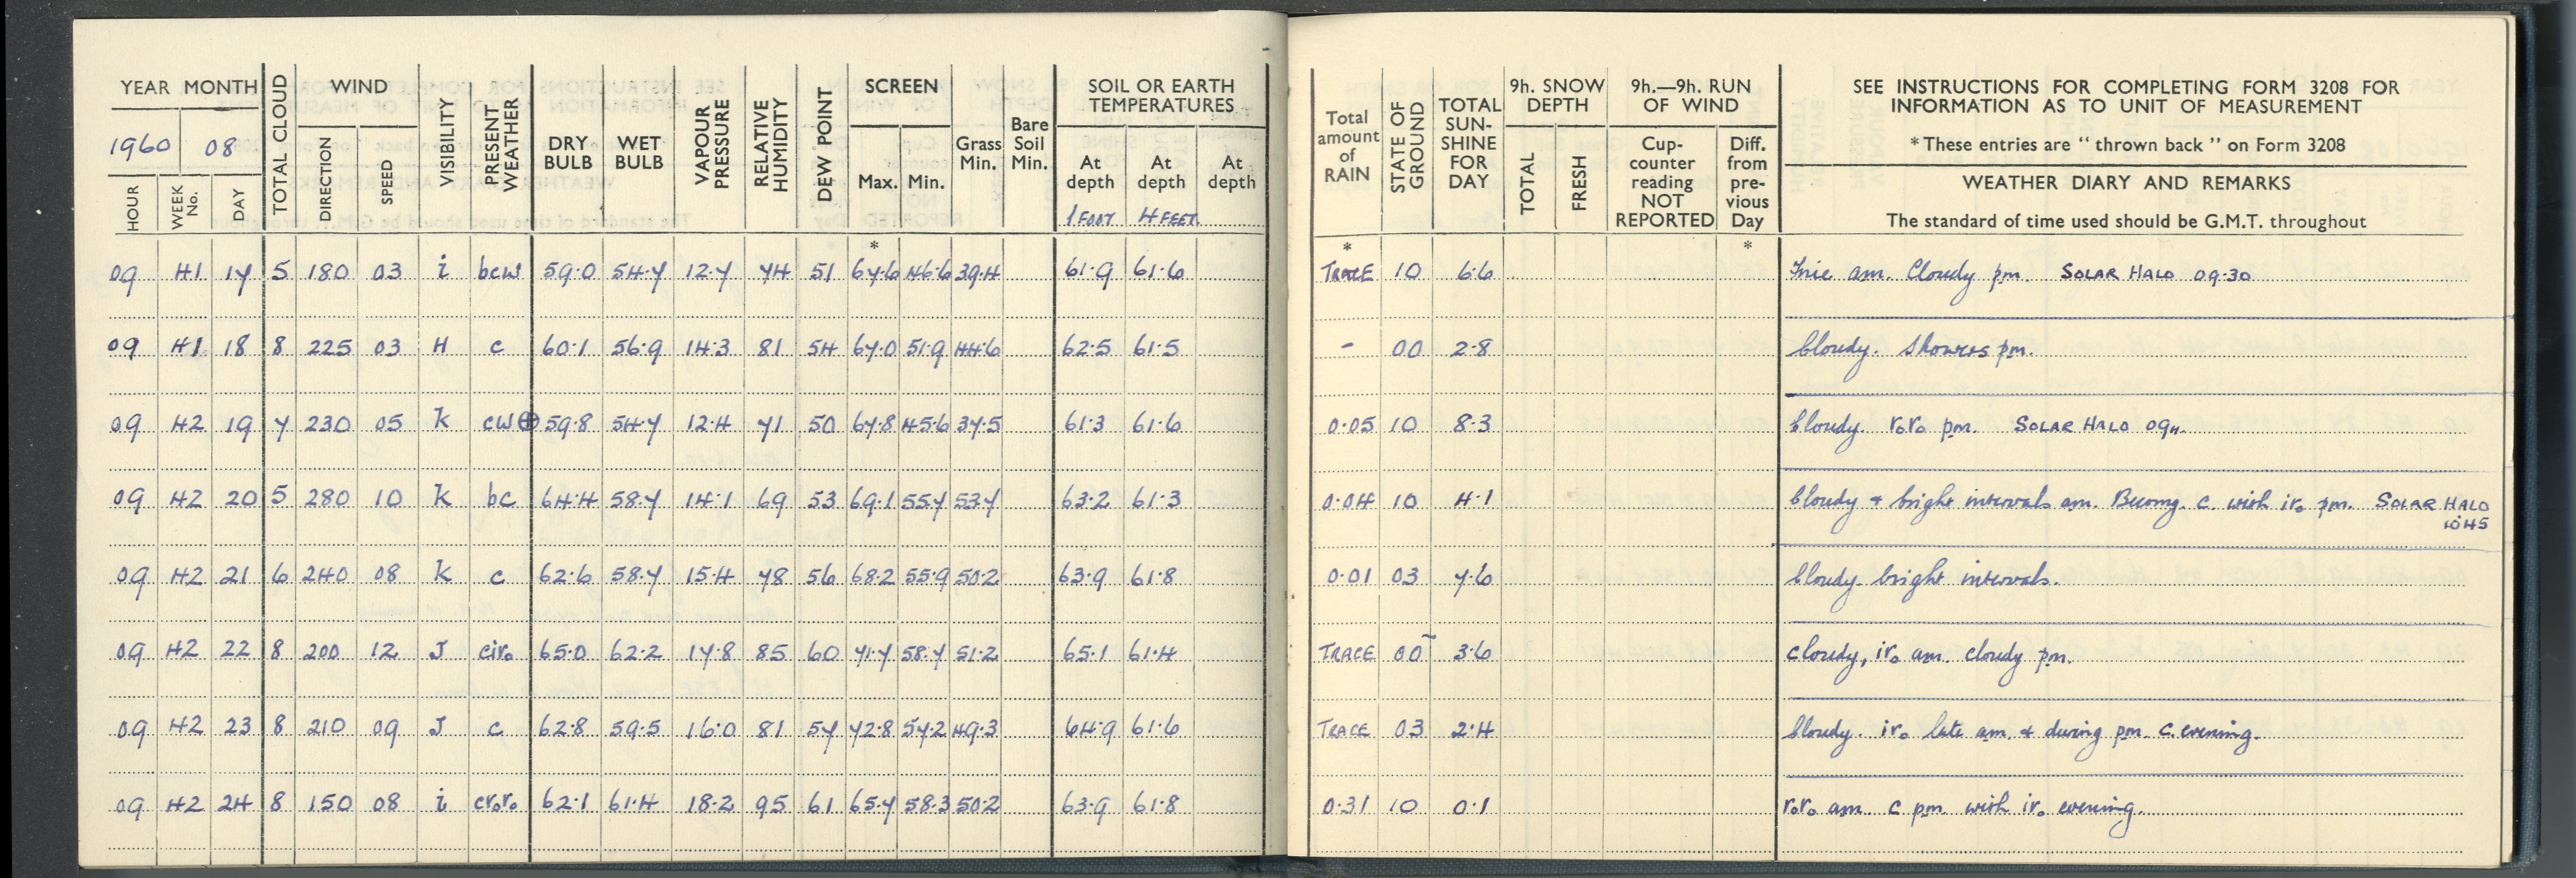 YEAR MONTH
1960 08
HOUR
WEEK No.
DAY
TOTAL CLOUD
WIND
DIRECTION
SPEED
VISIBILITY
PRESENT WEATHER
DRY BULB
WET BULB
VAPOUR PRESSURE
RELATIVE HUMIDITY
DEW POINT
SCREEN
Max. Min.
Grass Min.
Bare Soil Min.
SOIL OR EARTH TEMPERATURES
At depth 1 FOOT
At depth 4 FEET
At depth
Total amount of RAIN
STATE OF GROUND
TOTAL SUN-SHINE FOR DAY
9h. SNOW DEPTH
TOTAL
FRESH
9h.—9h. RUN OF WIND
Cup-counter reading NOT REPORTED
Diff. from pre-vious Day
SEE INSTRUCTIONS FOR COMPLETING FORM 3208 FOR
INFORMATION AS TO UNIT OF MEASUREMENT
* These entries are " thrown back " on Form 3208
WEATHER DIARY AND REMARKS
The standard of time used should be G.M.T. throughout
* * *
09 41 17 5 180 03 i bcw 59.0 54.7 12.7 74 51 67.6 46.6 39.4 61.9 61.6 TRACE 10 6.6 Fine am. Cloudy pm. SOLAR HALO 09.30
09 41 18 8 225 03 H c 60.1 56.9 14.3 81 54 67.0 51.9 44.6 62.5 61.5 - 00 2.8 Cloudy. Showers pm.
09 42 19 7 230 05 k cw⊕ 59.8 54.7 12.4 71 50 67.8 45.6 37.5 61.3 61.6 0.05 10 8.3 Cloudy. roro pm. SOLAR HALO 09H.
09 42 20 5 280 10 k bc 64.4 58.7 14.1 69 53 69.1 55.7 53.7 63.2 61.3 0.04 10 4.1 Cloudy + bright intervals am. Becomg. c. with iro pm. SOLAR HALO
1045
09 42 21 6 240 08 k c 62.6 58.7 15.4 78 56 68.2 55.9 50.2 63.9 61.8 0.01 03 7.6 Cloudy. bright intervals.
09 42 22 8 200 12 J ciro 65.0 62.2 17.8 85 60 71.7 58.7 51.2 65.1 61.4 TRACE 00 3.6 Cloudy, iro am. cloudy pm.
09 42 23 8 210 09 J c 62.8 59.5 16.0 81 57 72.8 57.2 49.3 64.9 61.6 TRACE 03 2.4 Cloudy. iro late am. + during pm. c. evening.
09 42 24 8 150 08 i croro 62.1 61.4 18.2 95 61 65.7 58.3 50.2 63.9 61.8 0.31 10 0.1 roro am. c pm. with iro evening.